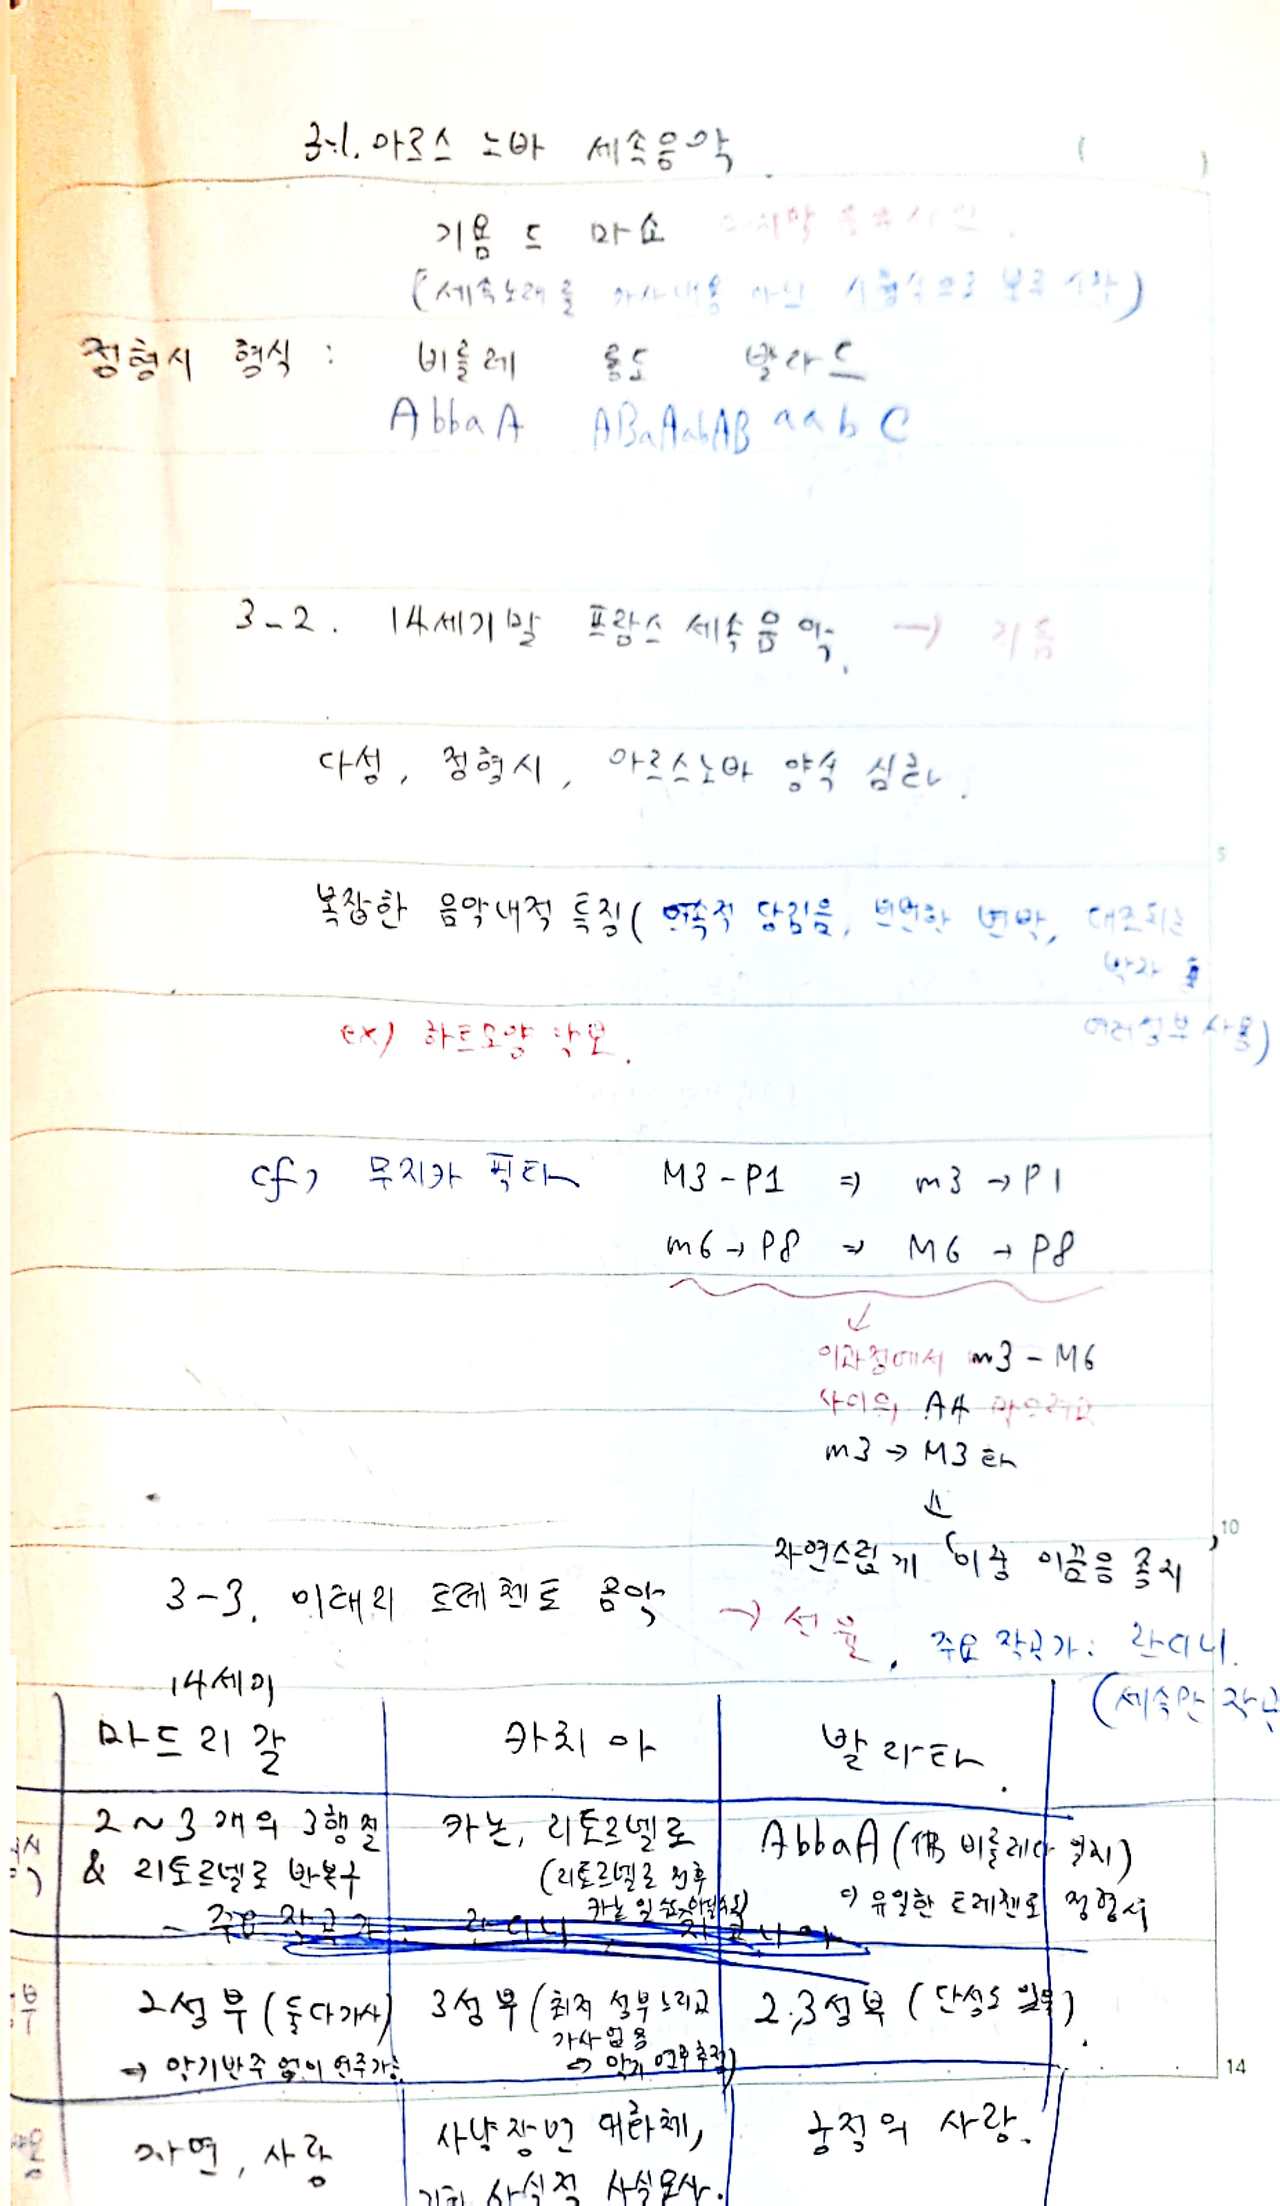 3-1. 아르스 노바 세속음악
( )
기욤 드 마쇼 마지막 음유시인.
(세속노래를 가사내용 아닌 시형식으로 분류 시작)
정형시 형식 : 비를레 롱도 발라드
AbbaA ABaAabAB aabC
3-2. 14세기말 프랑스 세속음악. → 리듬
다성, 정형시, 아르스노바 양식 심화.
복잡한 음악내적 특징 (연속적 당김음, 빈번한 변박, 대조되는
박자를
여러성부 사용)
ex) 하트모양 악보.
cf) 무지카 픽타 M3-P1 ⇒ m3→P1
m6→P8 ⇒ M6→P8
이과정에서 m3-M6
사이의 A4
m3→M3화
⇓
자연스럽게 이중 이끔음 종지
3-3. 이태리 트레첸토 음악 → 선율. 주요 작곡가: 란디니.
(세속만 작곡
14세기
마드리갈 카치아 발라타.
2~3개의 3행절 카논, 리토르넬로 AbbaA (佛 비를레와 일치)
& 리토르넬로 반복구 (리토르넬로 전후
카논 일수도, 아닐수도) ⇒ 유일한 트레첸토 정형시
2성부 (둘다가사) 3성부 (최저 성부 느리고 2,3성부 (단성도 일부).
→ 악기반주 없이 연주가능 가사없음
⇒ 악기 연주 추정)
자연, 사랑 사냥장면 대화체, 궁정의 사랑.
기타 사실적 사실묘사.